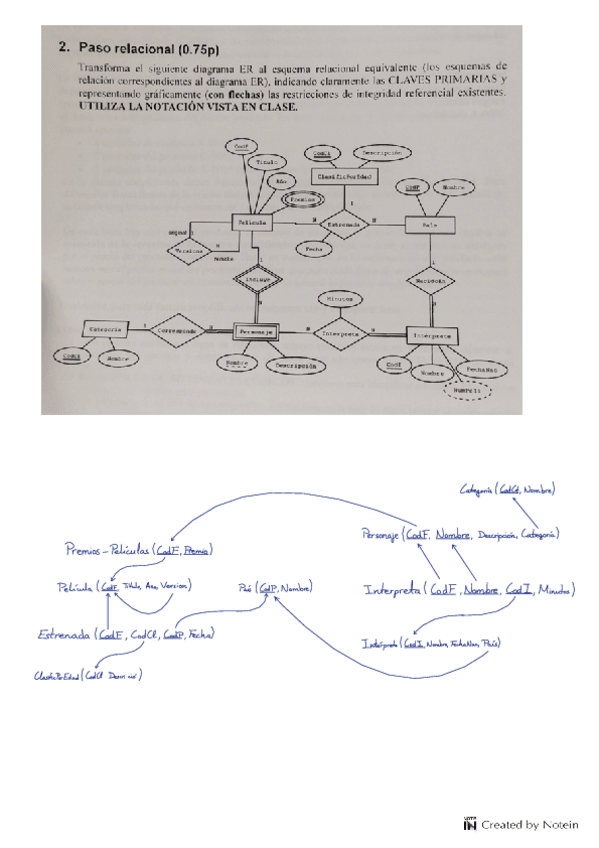 2. Paso relacional (0.75p)
Transforma el siguiente diagrama ER al esquema relacional equivalente (los esquemas de
relación correspondientes al diagrama ER), indicando claramente las CLAVES PRIMARIAS y
representando gráficamente (con flechas) las restricciones de integridad referencial existentes.
UTILIZA LA NOTACIÓN VISTA EN CLASE.
CodF
Titulo
Año
Premios
Descripción
Película
Estrenada
Fecha
Nombre
original 1
N
Versiona
remake
Incluye
1
Minutos
Categoría
1
Corresponde
Personaje
N
Interpreta
Intérprete
CodCt
Nombre
Nombre
Descripción
Nombre
FechaNac
Categoría (CodCt, Nombre)
Personaje (CodF, Nombre, Descripción, Categoría)
Premios-Películas (CodF, Premio)
Película (CodF, Titulo, Ano, Version)
País (CodP, Nombre)
Interpreta (CodF, Nombre, CodI, Minutos)
Estrenada (CodF, CodCl, CodP, Fecha)
Intérprete (CodI, Nombre, FechaNac, País)
Created by Notein